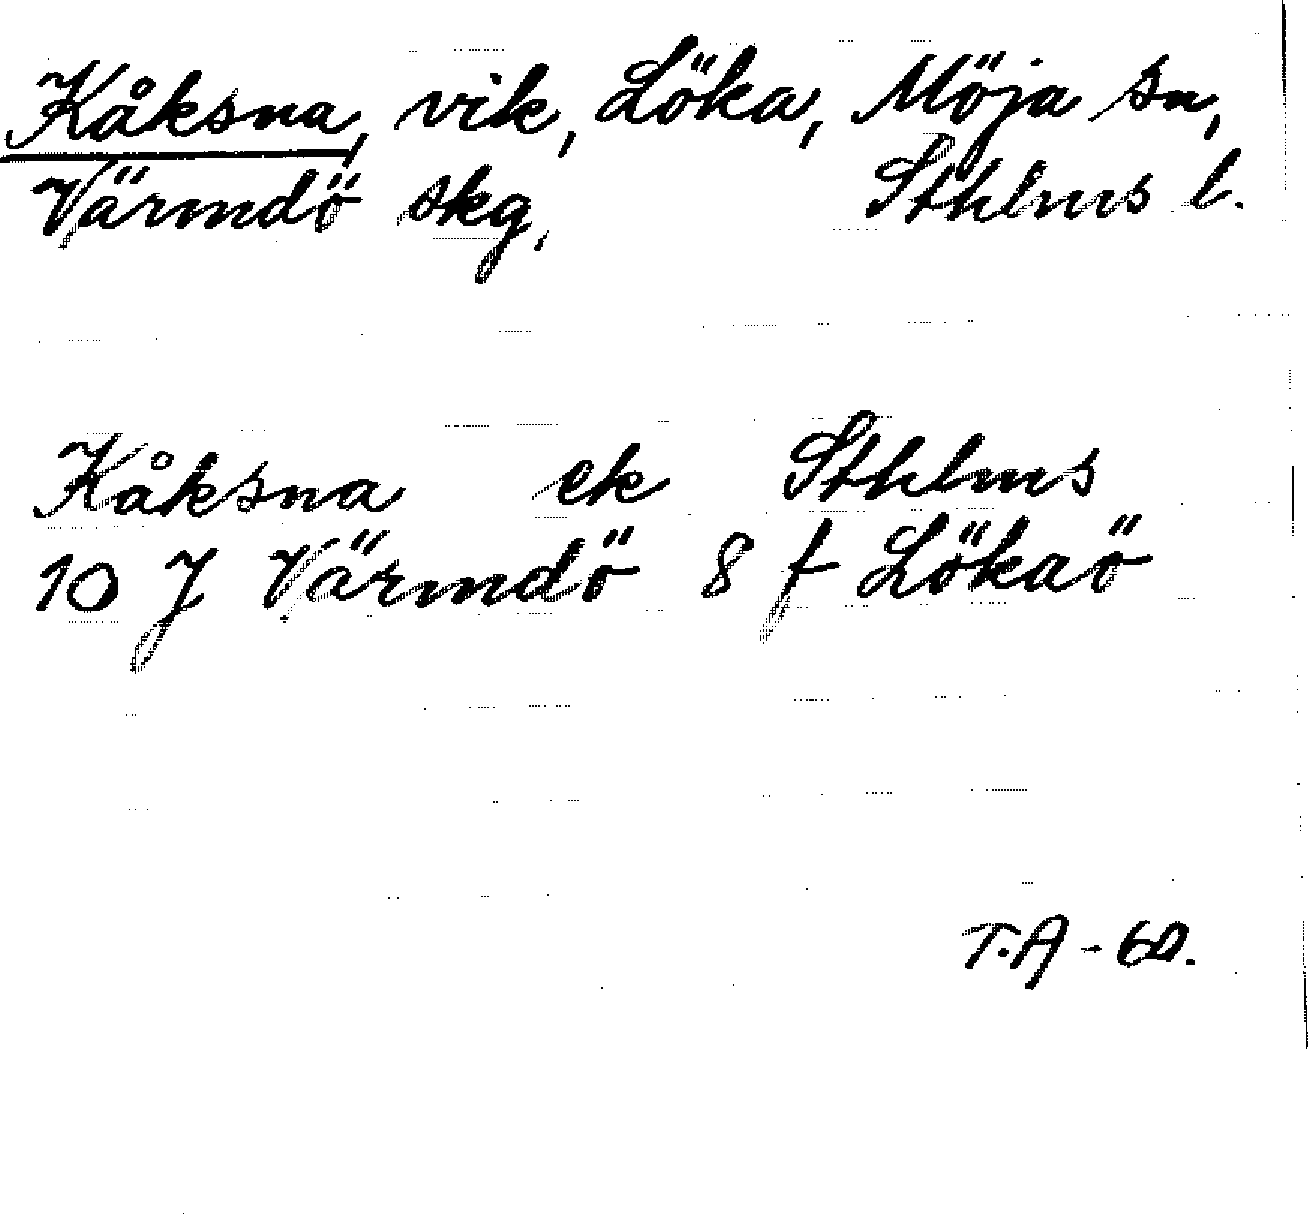 Kåksna, vik, Löka, Möja sn,
Värmdö skg, Sthlms l.
Kåksna ek Sthlms
10 J Värmdö 8 f Lökaö
T.A - 60.